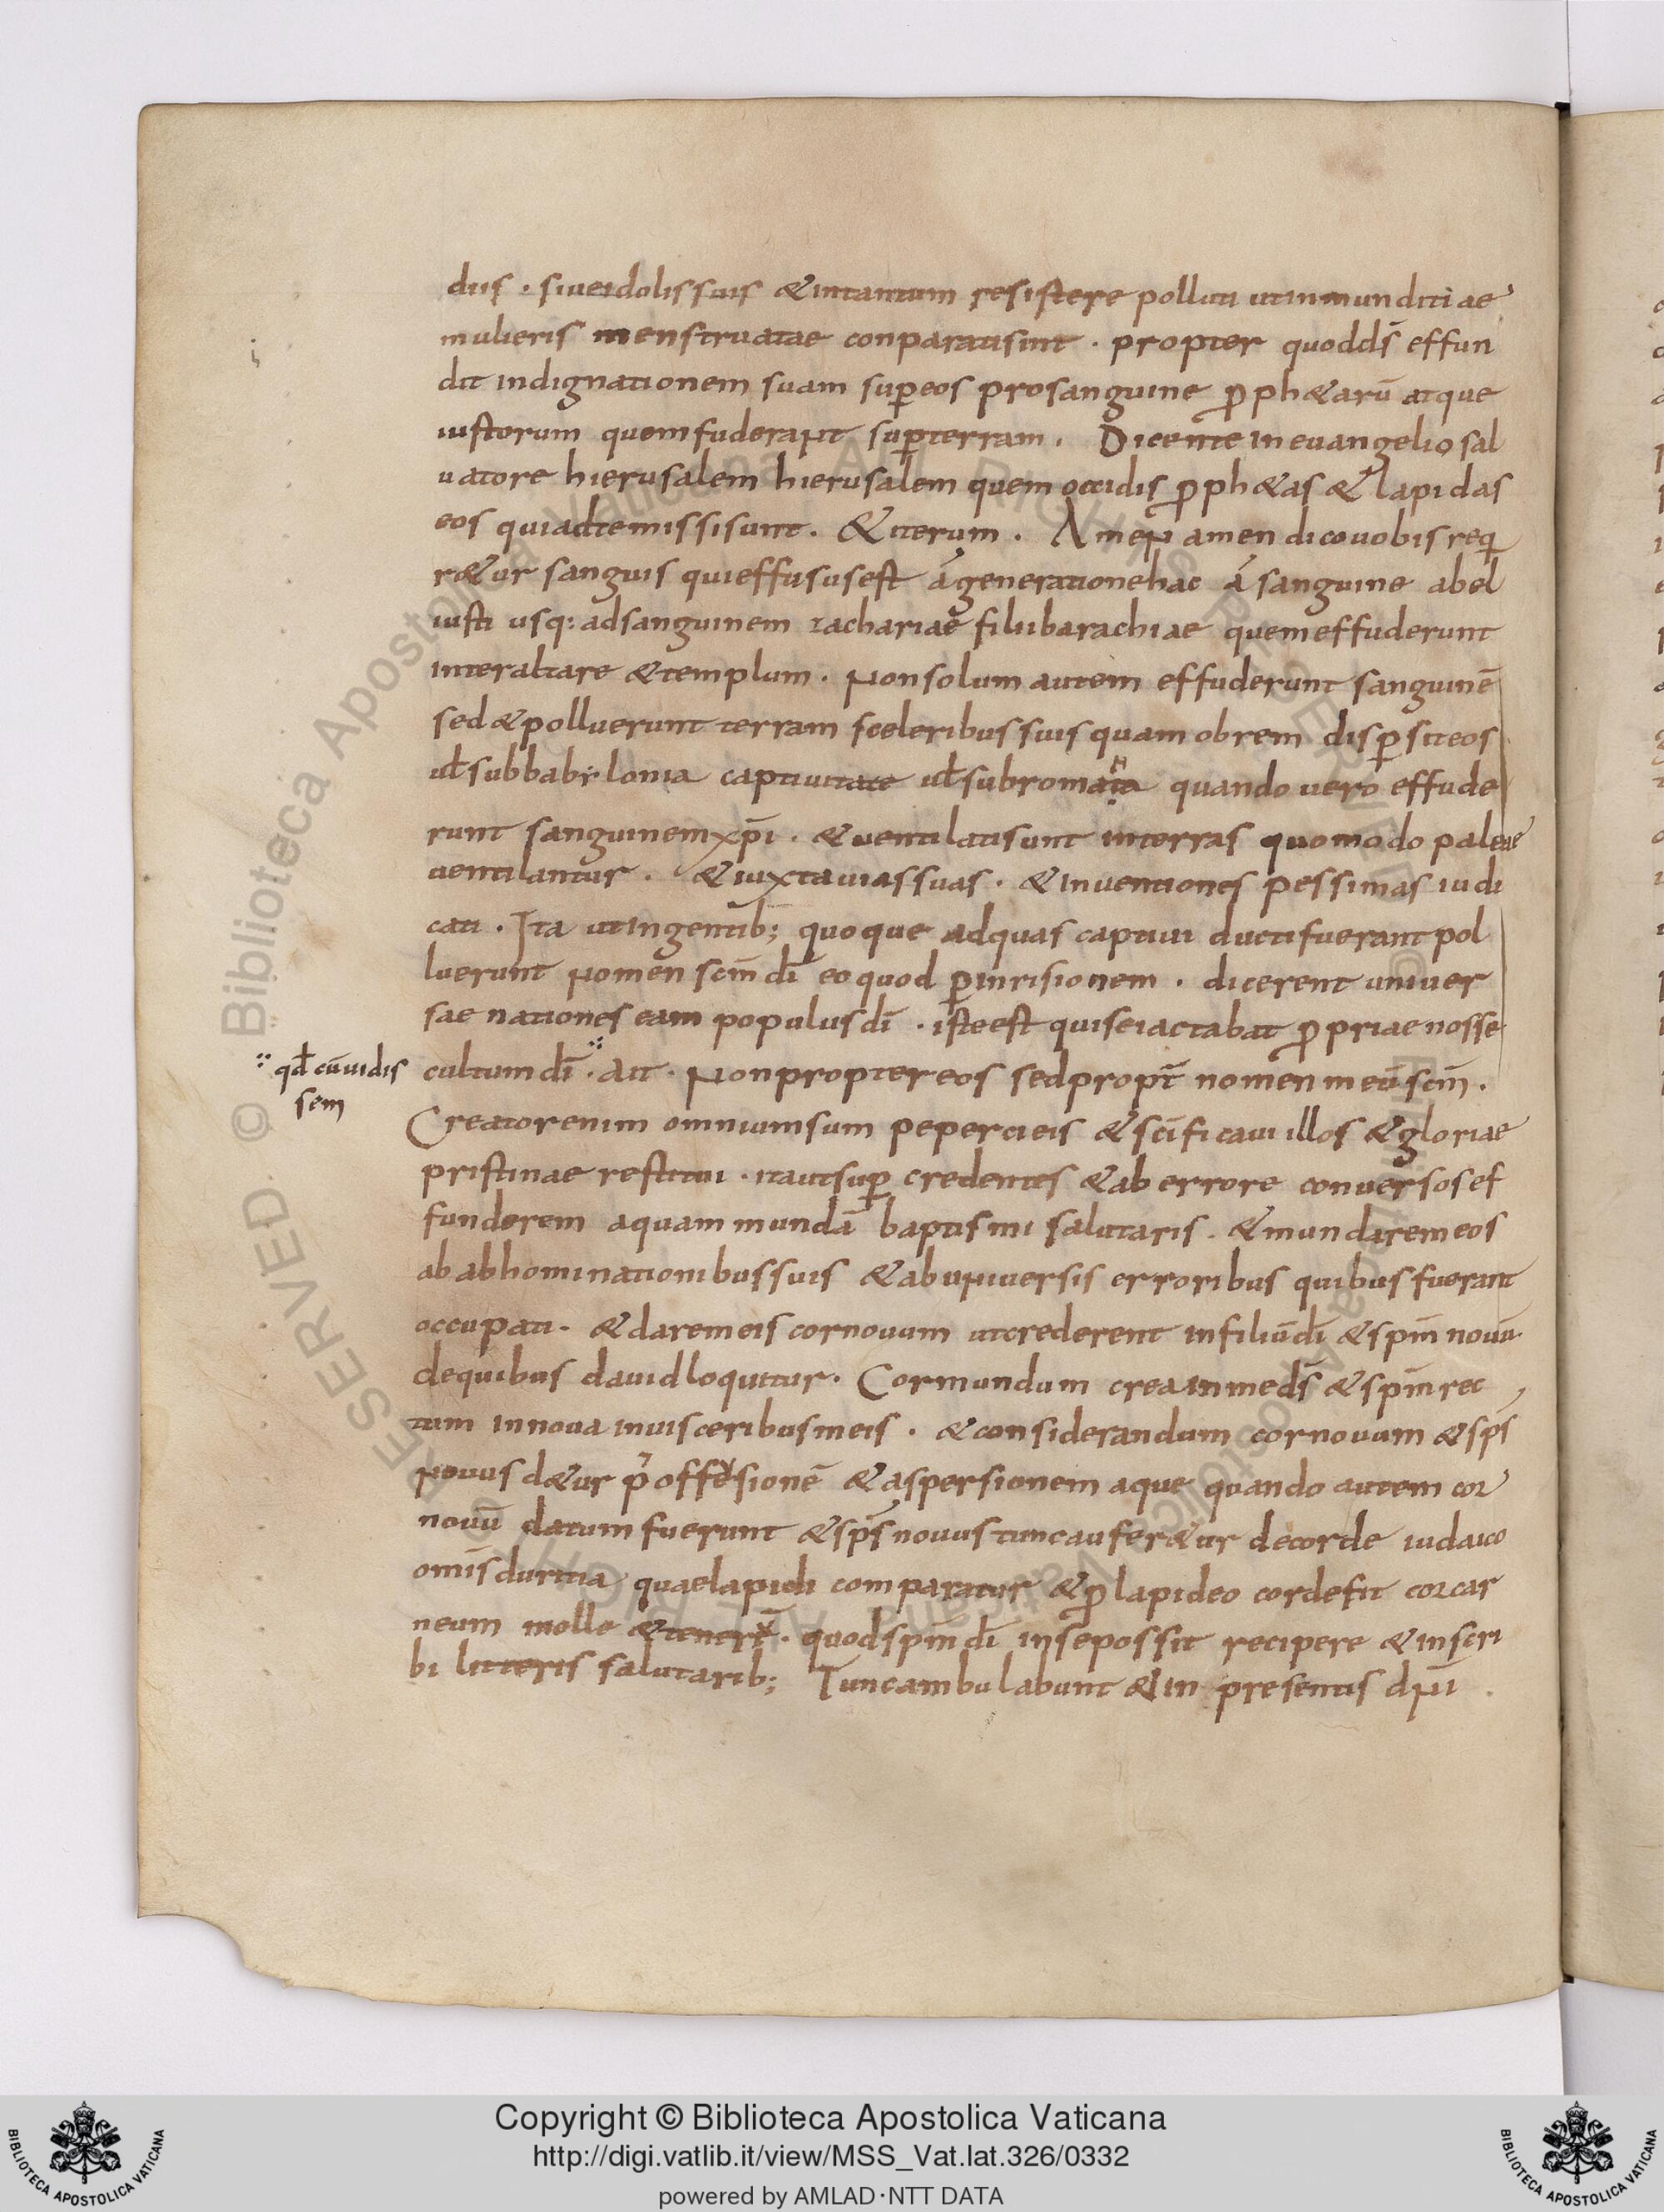 diis · siue idolis suis & intantum resistere polluti utinmunditiae
mulieris menstruatae conparati sint · propter quod dš effun
dit indignationem suam sup eos pro sanguine ꝓph&arū atque
iustorum quem fuderant sup terram. Dicente in euangelio sal
uatore hierusalem hierusalem quem occidis ꝓph&as & lapidas
eos qui ad te missi sunt. & iterum. Amen amen dico uobis req
r&ur sanguis qui effusus est á generatione hac á sanguine abel
iusti usq: ad sanguinem zachariae filii barachiae quem effuderunt
inter altare & templum. Non solum autem effuderunt sanguinē
sed & polluerunt terram sceleribus suis quam obrem dispsit eos
uł sub babylonia captiuitate uł sub romana quando uero effude
runt sanguinem xp̄i · & uentilati sunt in terras quomodo paleae
uentilantur. & iuxta uias suas. & inuentiones pessimas iudi
cati. Ita ut in gentib; quoque ad quas captiui ducti fuerant pol
luerunt nomen scm̄ dī eo quod p inrisionem. dicerent uniuer
sae nationes eam populus dī. iste est qui se iactabat ꝓpriae nosse
qđ cū uidis
sem
cultum dī. ait. Non propter eos sed propt̄ nomen meū scm̄.
Creator enim omnium sum peperci eis & sc̄ificaui illos & gloriae
pristinae restitui. ita ut sup credentes & ab errore conuersos ef
funderem aquam mundā baptismi salutaris. & mundarem eos
ab abhominationibus suis & ab uniuersis erroribus quibus fuerant
occupati. & darem eis cor nouum ut crederent in filiū dī & spm̄ nouū
de quibus dauid loquitur. Cor mundum crea in me dš & spm̄ rec
tum innoua in uisceribus meis. & considerandum cor nouum & sps̄
nouus d&ur offesionē & aspersionem aque quando autem cor
nouū datum fuerunt & sps̄ nouus tunc aufer&ur de corde iudaico
om̄is duritia quae lapidi comparatur & ꝓ lapideo corde fit cor car
neum molle & tenerē. quod spm̄ dī in se possit recipere & inscri
bi litteris salutarib; Tunc ambulabunt & in presentis dn̄i
Copyright © Biblioteca Apostolica Vaticana
http://digi.vatlib.it/view/MSS_Vat.lat.326/0332
powered by AMLAD·NTT DATA
BIBLIOTECA APOSTOLICA VATICANA
BIBLIOTECA APOSTOLICA VATICANA